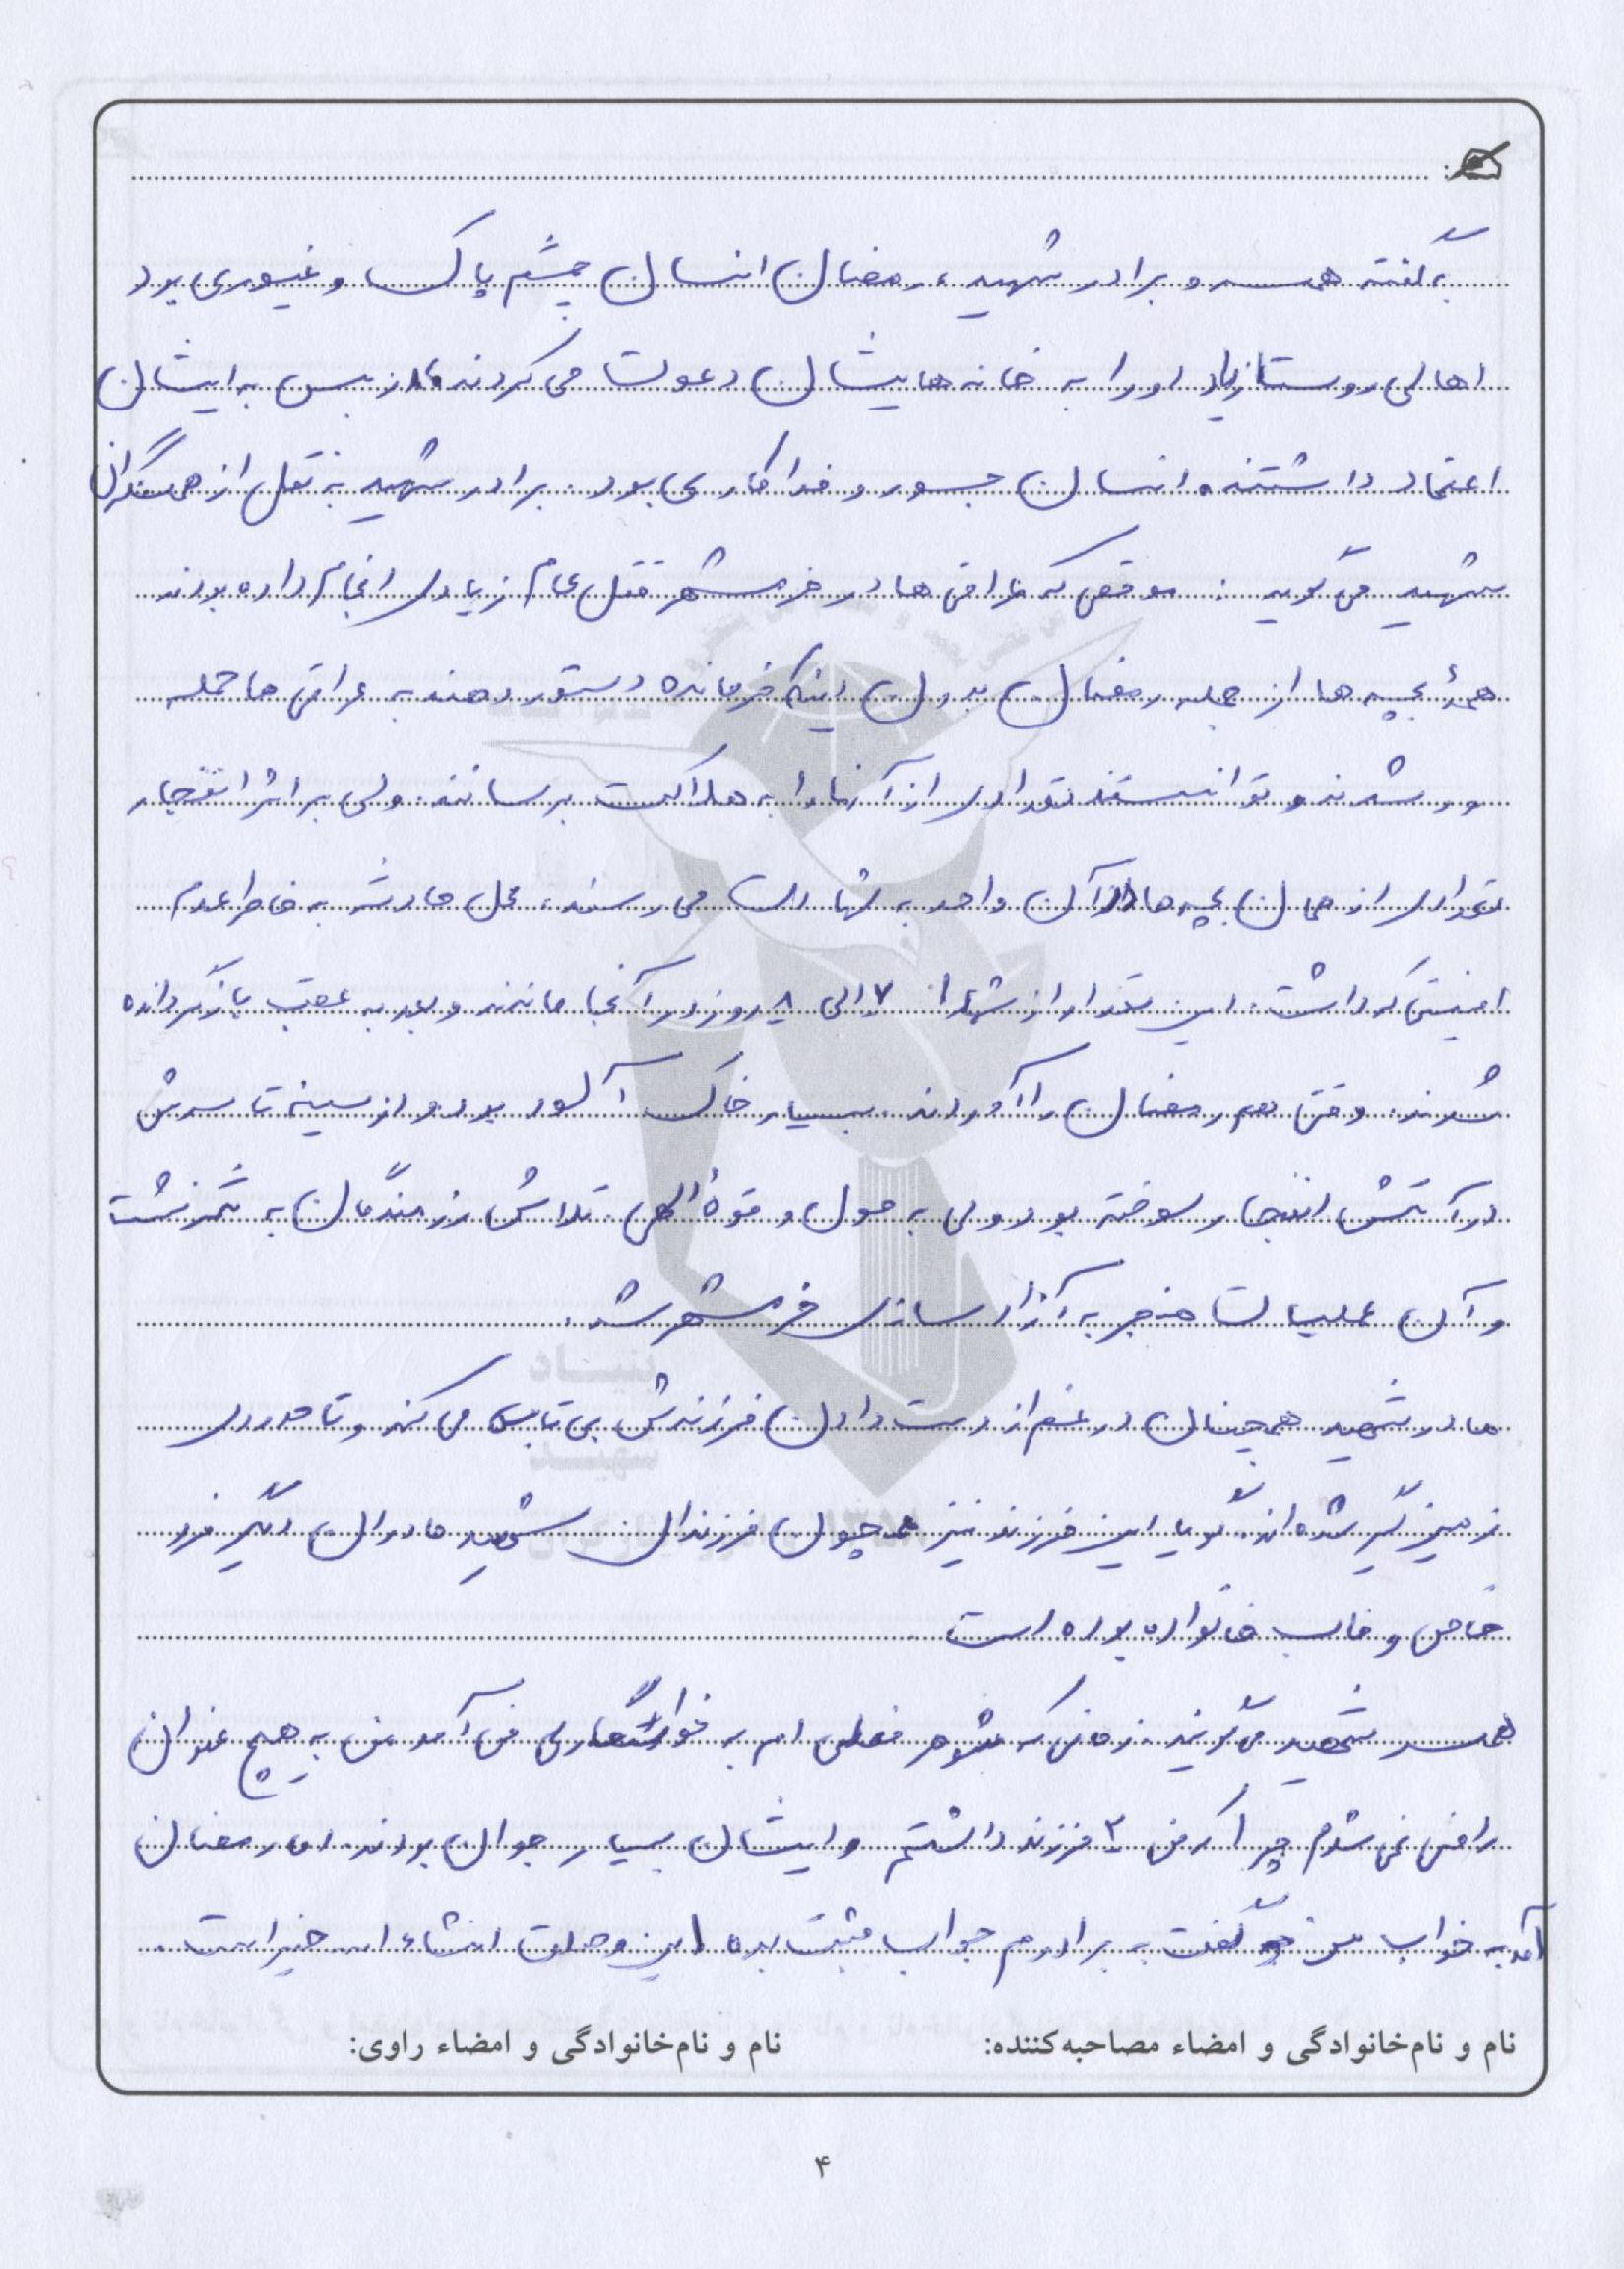 به گفته همسر و برادر شهید، رمضان انسان چشم پاک و غیوری بود
اهالی روستا زیاد او را به خانه هایشان دعوت می کردند از بس به ایشان
اعتماد داشتند. انسان جسور و فداکاری بود. برادر شهید به نقل از همسنگران
شهید می گوید: موقعی که عراقی ها در خرمشهر قتل عام زیادی انجام داده بودند
همۀ بچه ها از جمله رمضان بدون اینکه فرمانده دستور دهند به عراقی ها حمله
ور شدند و توانستند تعدادی از آنها را به هلاکت برسانند. ولی بر اثر انفجار
تعدادی از همان بچه ها در آن واحد به شهادت می رسند، محل حادثه به خاطر عدم
امنیتی که داشت. این تعداد از شهدا ۷ الی ۸ روز در آنجا ماندند و بعد به عقب بازگردانده
شدند. وقتی هم رمضان را آوردند. بسیار خاک آلود بود و از سینه تا سرش
در آتش انفجار سوخته بود ولی به حول و قوۀ الهی. تلاش رزمندگان به ثمر نشست
و آن عملیات منجر به آزادسازی خرمشهر شد.
مادر شهید همچنان در غم از دست دادن فرزندش بی تابی می کند و تا حدودی
زمین گیر شده اند. گویا این فرزند نیز همچون فرزندان شهید مادران دیگر فرد
خاص و ناب خانواده بوده است
همسر شهید می گویند. زمانی که شوهر فعلی ام به خواستگاری من آمد من به هیچ عنوان
راضی نمی شدم چرا که من ۳ فرزند داشتم و ایشان بسیار جوان بودند. اما رمضان
آمد به خواب من و گفت به برادرم جواب مثبت بده این وصلت انشاءاله خیر است.
نام و نام‌خانوادگی و امضاء مصاحبه‌کننده: نام و نام‌خانوادگی و امضاء راوی:
۴